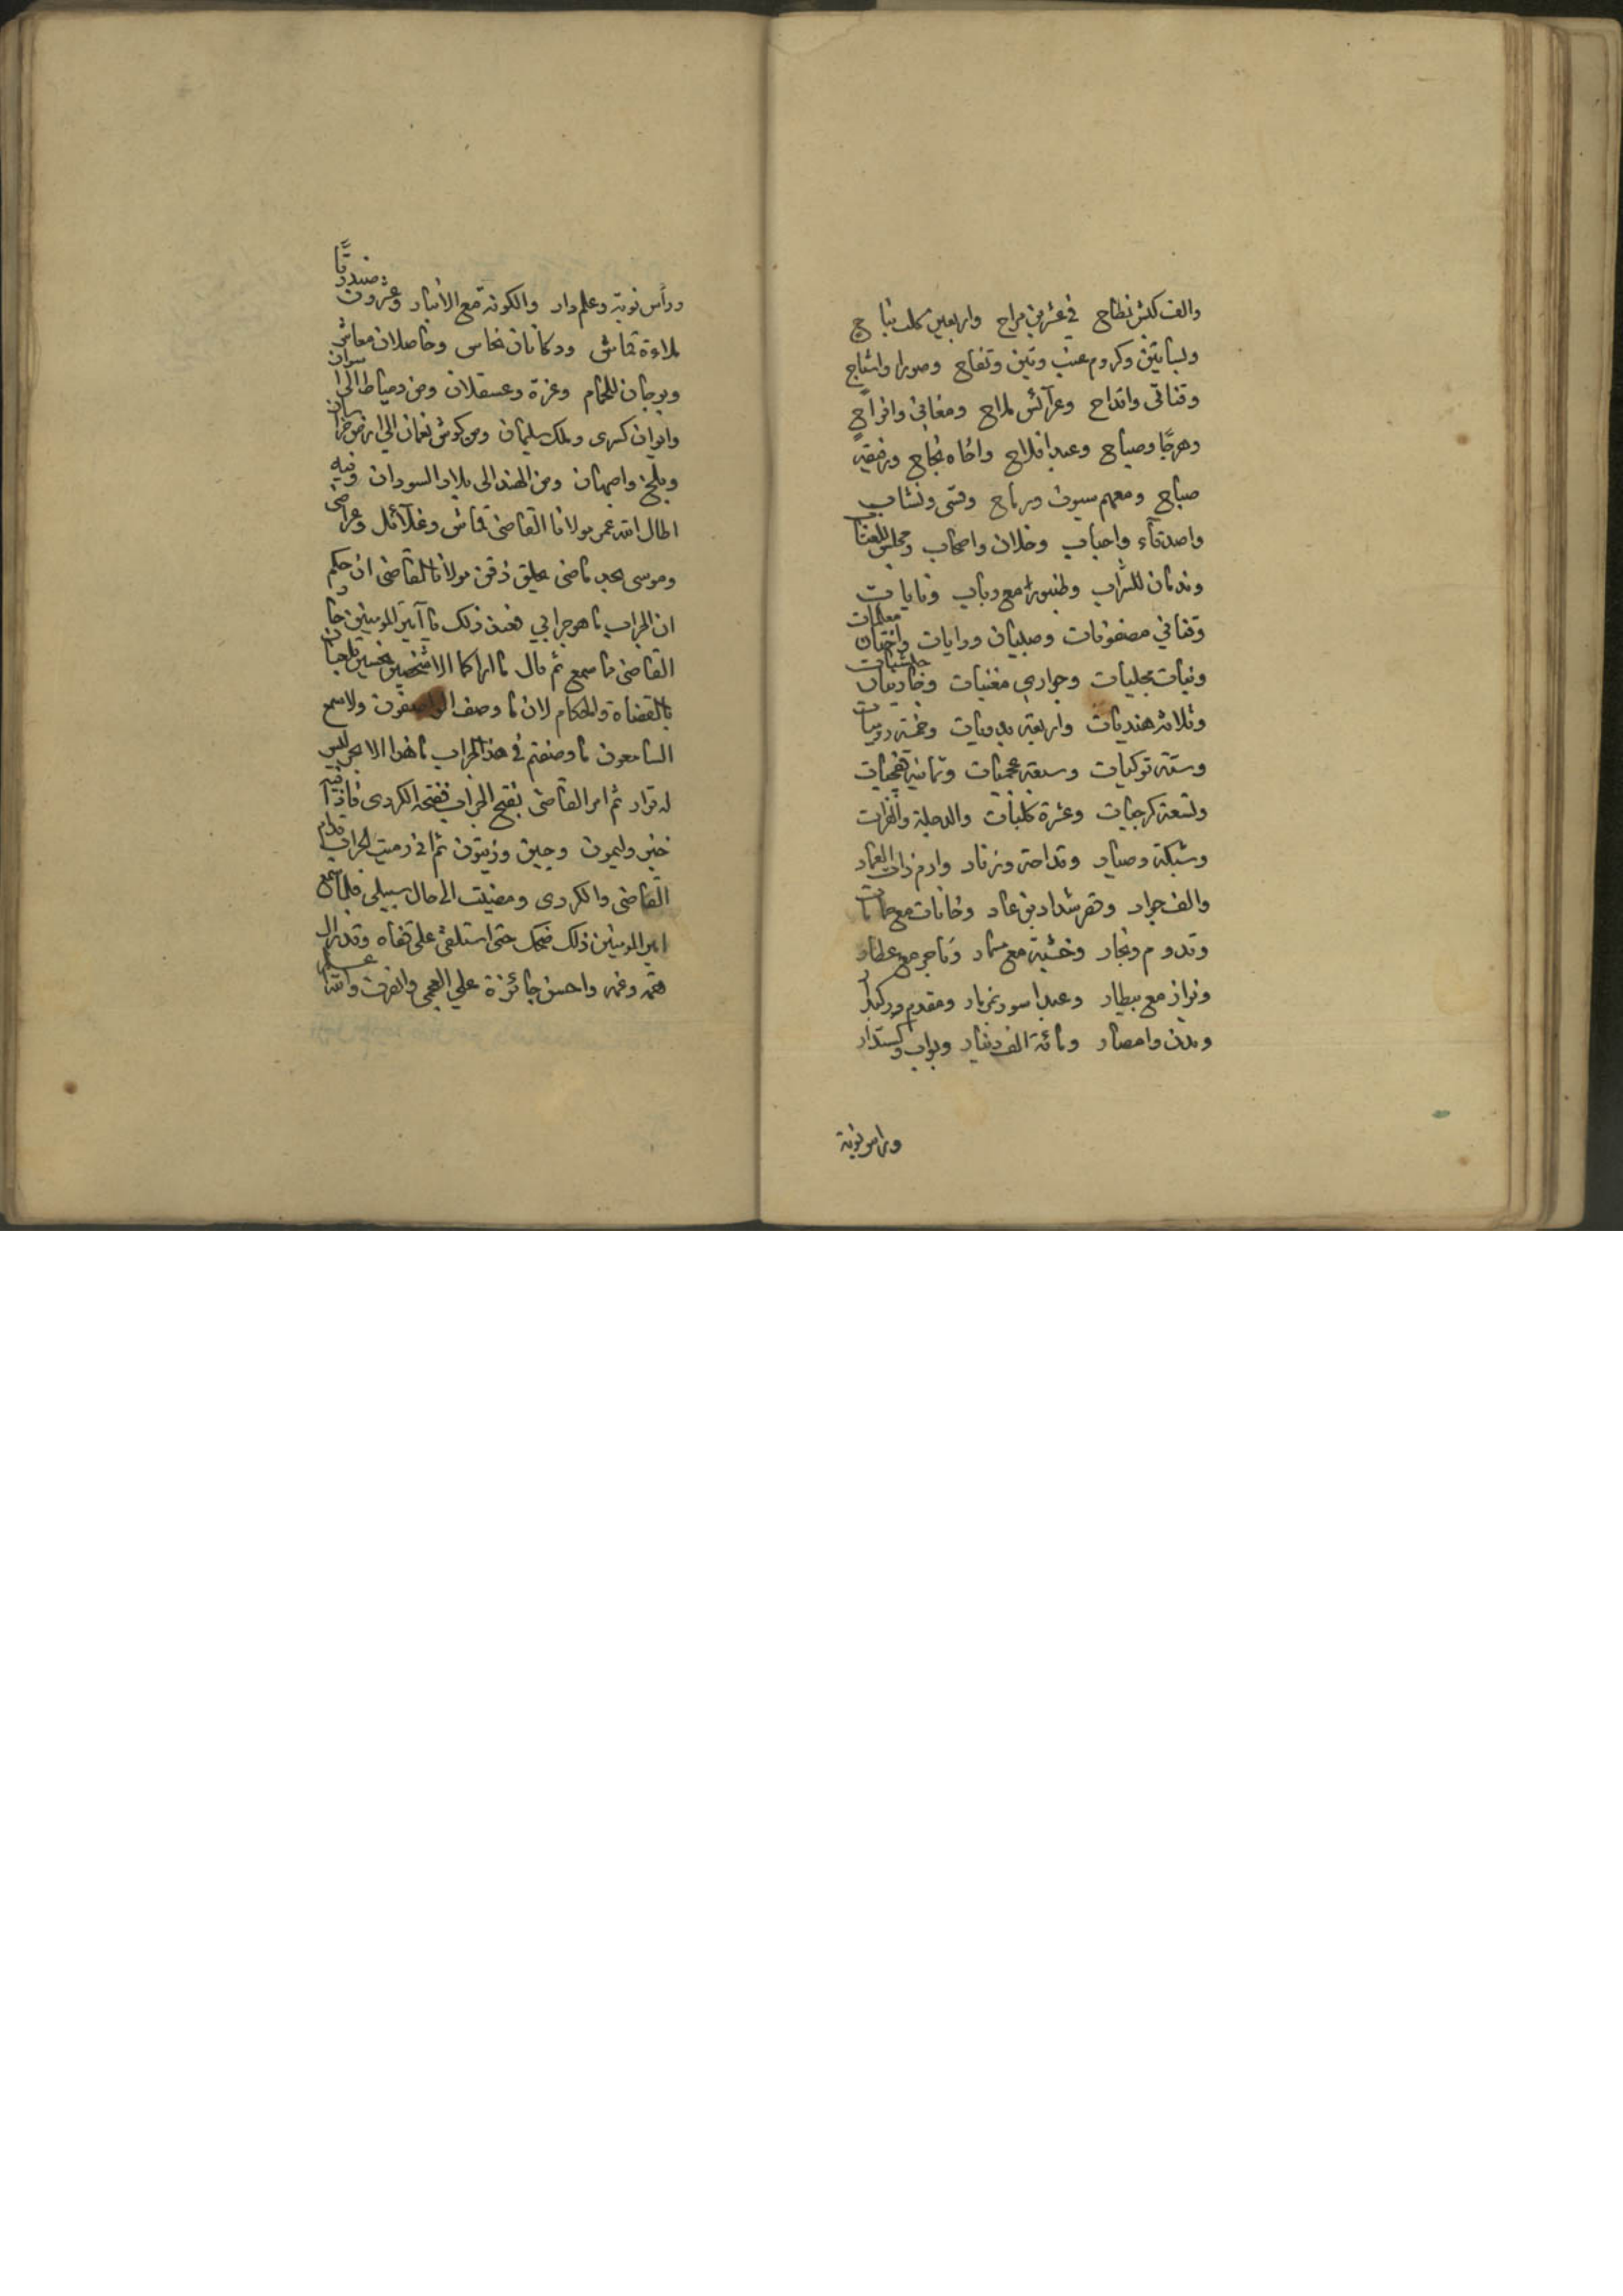 والف كبش نطاح في عشرين مراح واربعين كلب نباح
وبساتين وكروم عنب وتين وتفاح وصور واشباح
وقناني واقداح وعرآئس ملاح ومغاني وافراح
وهرجًا وصياح وعبد افلاح واخاه نجاح ورفيقه
صباح ومعهم سيوف ورماح وقسي ونشاب
واصدقآء واحباب وخلان واصحاب ومجلس للعتاب
وندمان للشراب وطنبورًا مع رباب ونايات
وقناني مصفوفات وصلبان ورايات واختان معلمات
وبنات مجليات وجواري مغنيات وخمس حبشيات
وثلاثه هنديات واربعه مدنيات وخمسة روميات
وستة تركيات وسبعه عجميات وثمانيه قفجيات
وتسعة كرجيات وعشرة كلبيات والدجلة والفرات
وشبكة وصياد وقداحة وزناد وارم ذات العماد
والف جواد وقصر شداد بن عاد وخانات مع حمامات
وقدوم ونجار وخشبة مع مسمار وتاجر مع عطار
وبزاز مع بيطار وعبد اسود بمزمار ومقدم وركبدار
ومدن وامصار ومائة الف دينار وبواب وكستدار
وراس نوبة
ورأس نوبة وعلمدار والكوفة مع الانبار وعشرون صندوقًا
ملاءة قماش ودكانان نحاس وحاصلان معاش
وبرجان للحمام وغزة وعسقلان ومن دمياط الى اسوان
وايوان كسرى وملك سليمان ومن كوش نعمان الى ارض خراسان
وبلخ واصبهان ومن الهند الى بلاد السودان وفيه
اطال الله عمر مولانا القاضي قماش وغلآئل وعراضي
وموسى بحد ماضي يحلق ذقن مولانا القاضي ان حكم
ان الجراب ما هو جرابي فعند ذلك يا آمير المومنين حار
القاضي مما سمع ثم قال ما اراكما الا شخصين نحسين تلعبان
بالقضاة والحكام لان ما وصف الواصفون ولا سمع
السامعون ما وصفتم في هذا الجراب ما هذا الا بحر ليس
له قرار ثم امر القاضي بفتح الجراب ففتحه الكردي فاذا فيه
خبز وليمون وجبن وزيتون ثم اني رميت الجراب قدام
القاضي والكردي ومضيت الى حال سبيلي فلما سمع
امير المومنين ذلك ضحك حتى استلقى على قفاه وقد زال
همه وغمه واحسن جائزة علي العجمي وانصرف والله اعلم